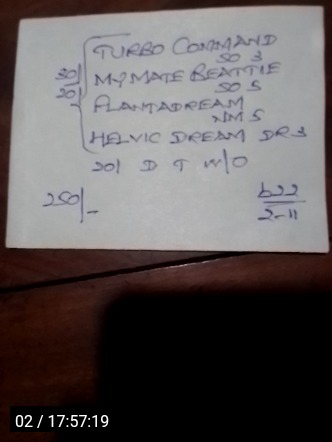 TURBO COMMAND
SO 3
30/ MY MATE BEATTIE
20/ SO 5
PLANTADREAM
NM 5
HELVIC DREAM DR 3
20/ D T W/O
250/-
b22
2-11
02 / 17:57:19